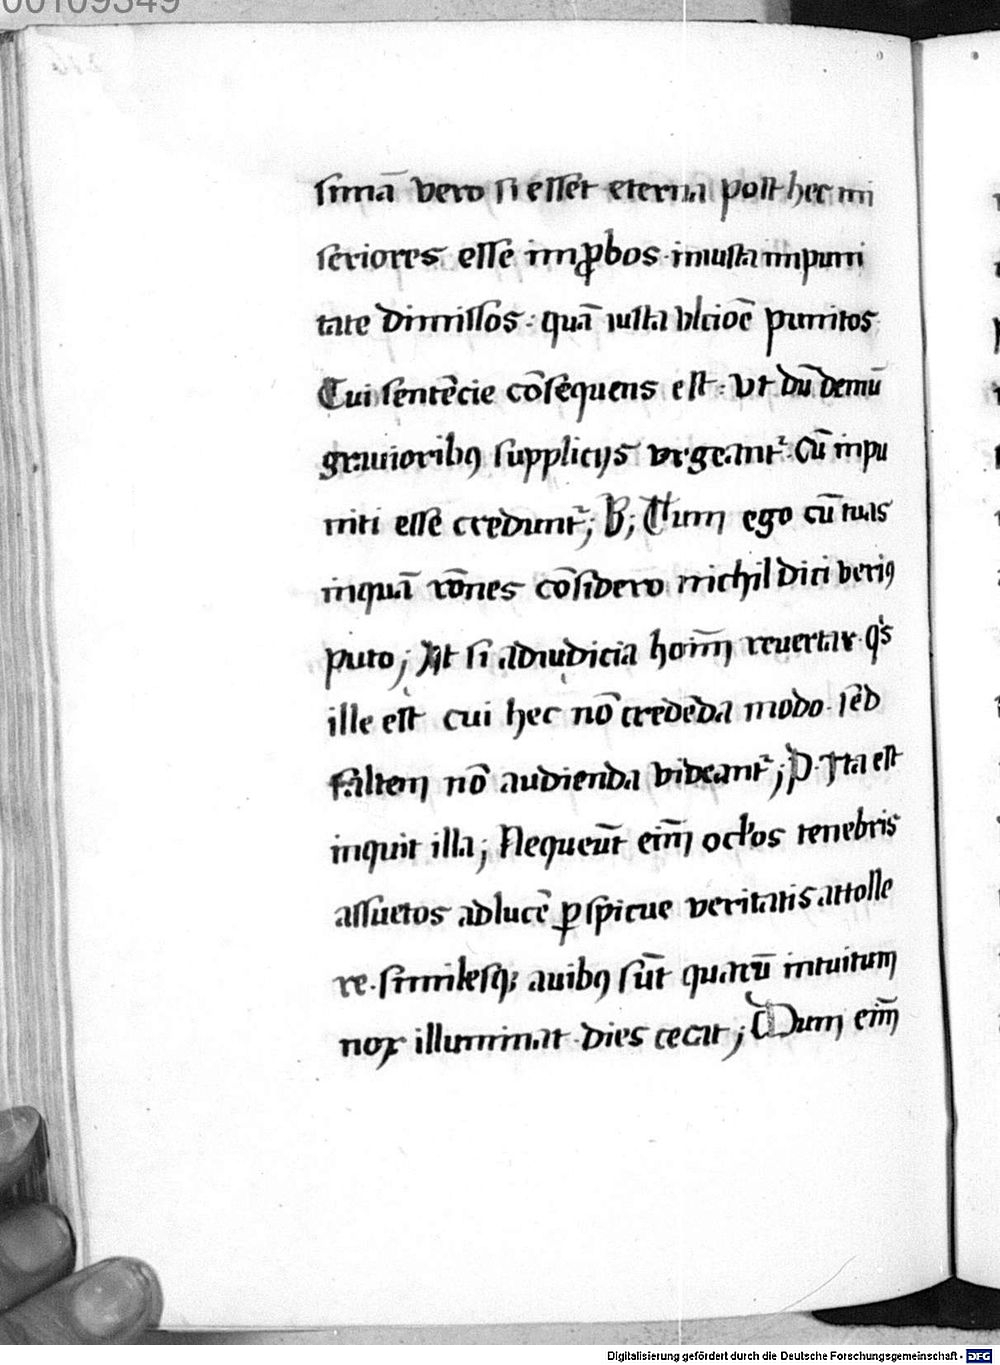 00109349
simā vero si esset eterna post hec mi
seriores esse imꝓbos iniusta impuni
tate dimissos : quā iusta ulcioē punitos
Cui sentēcie cōsequens est : ut dū demū
grauioribꝰ suppliciis urgeant᷑ cū impu
niti esse credunt᷑; B; Tum ego cū tuas
inquā rōnes cōsidero nichil dici veriꝰ
puto; At si ad iudicia hoīm reuertar qͥs
ille est cui hec nō credēda modo sed
saltem nō audienda videant᷑; P. Ita est
inquit illa; Nequeūt eīm oclos tenebris
assuetos ad lucē ꝑspicue veritatis attolle
re. similesqꝫ auibꝰ sūt quarū intuitum
nox illuminat dies cecat; Dum eīm
Digitalisierung gefördert durch die Deutsche Forschungsgemeinschaft - DFG